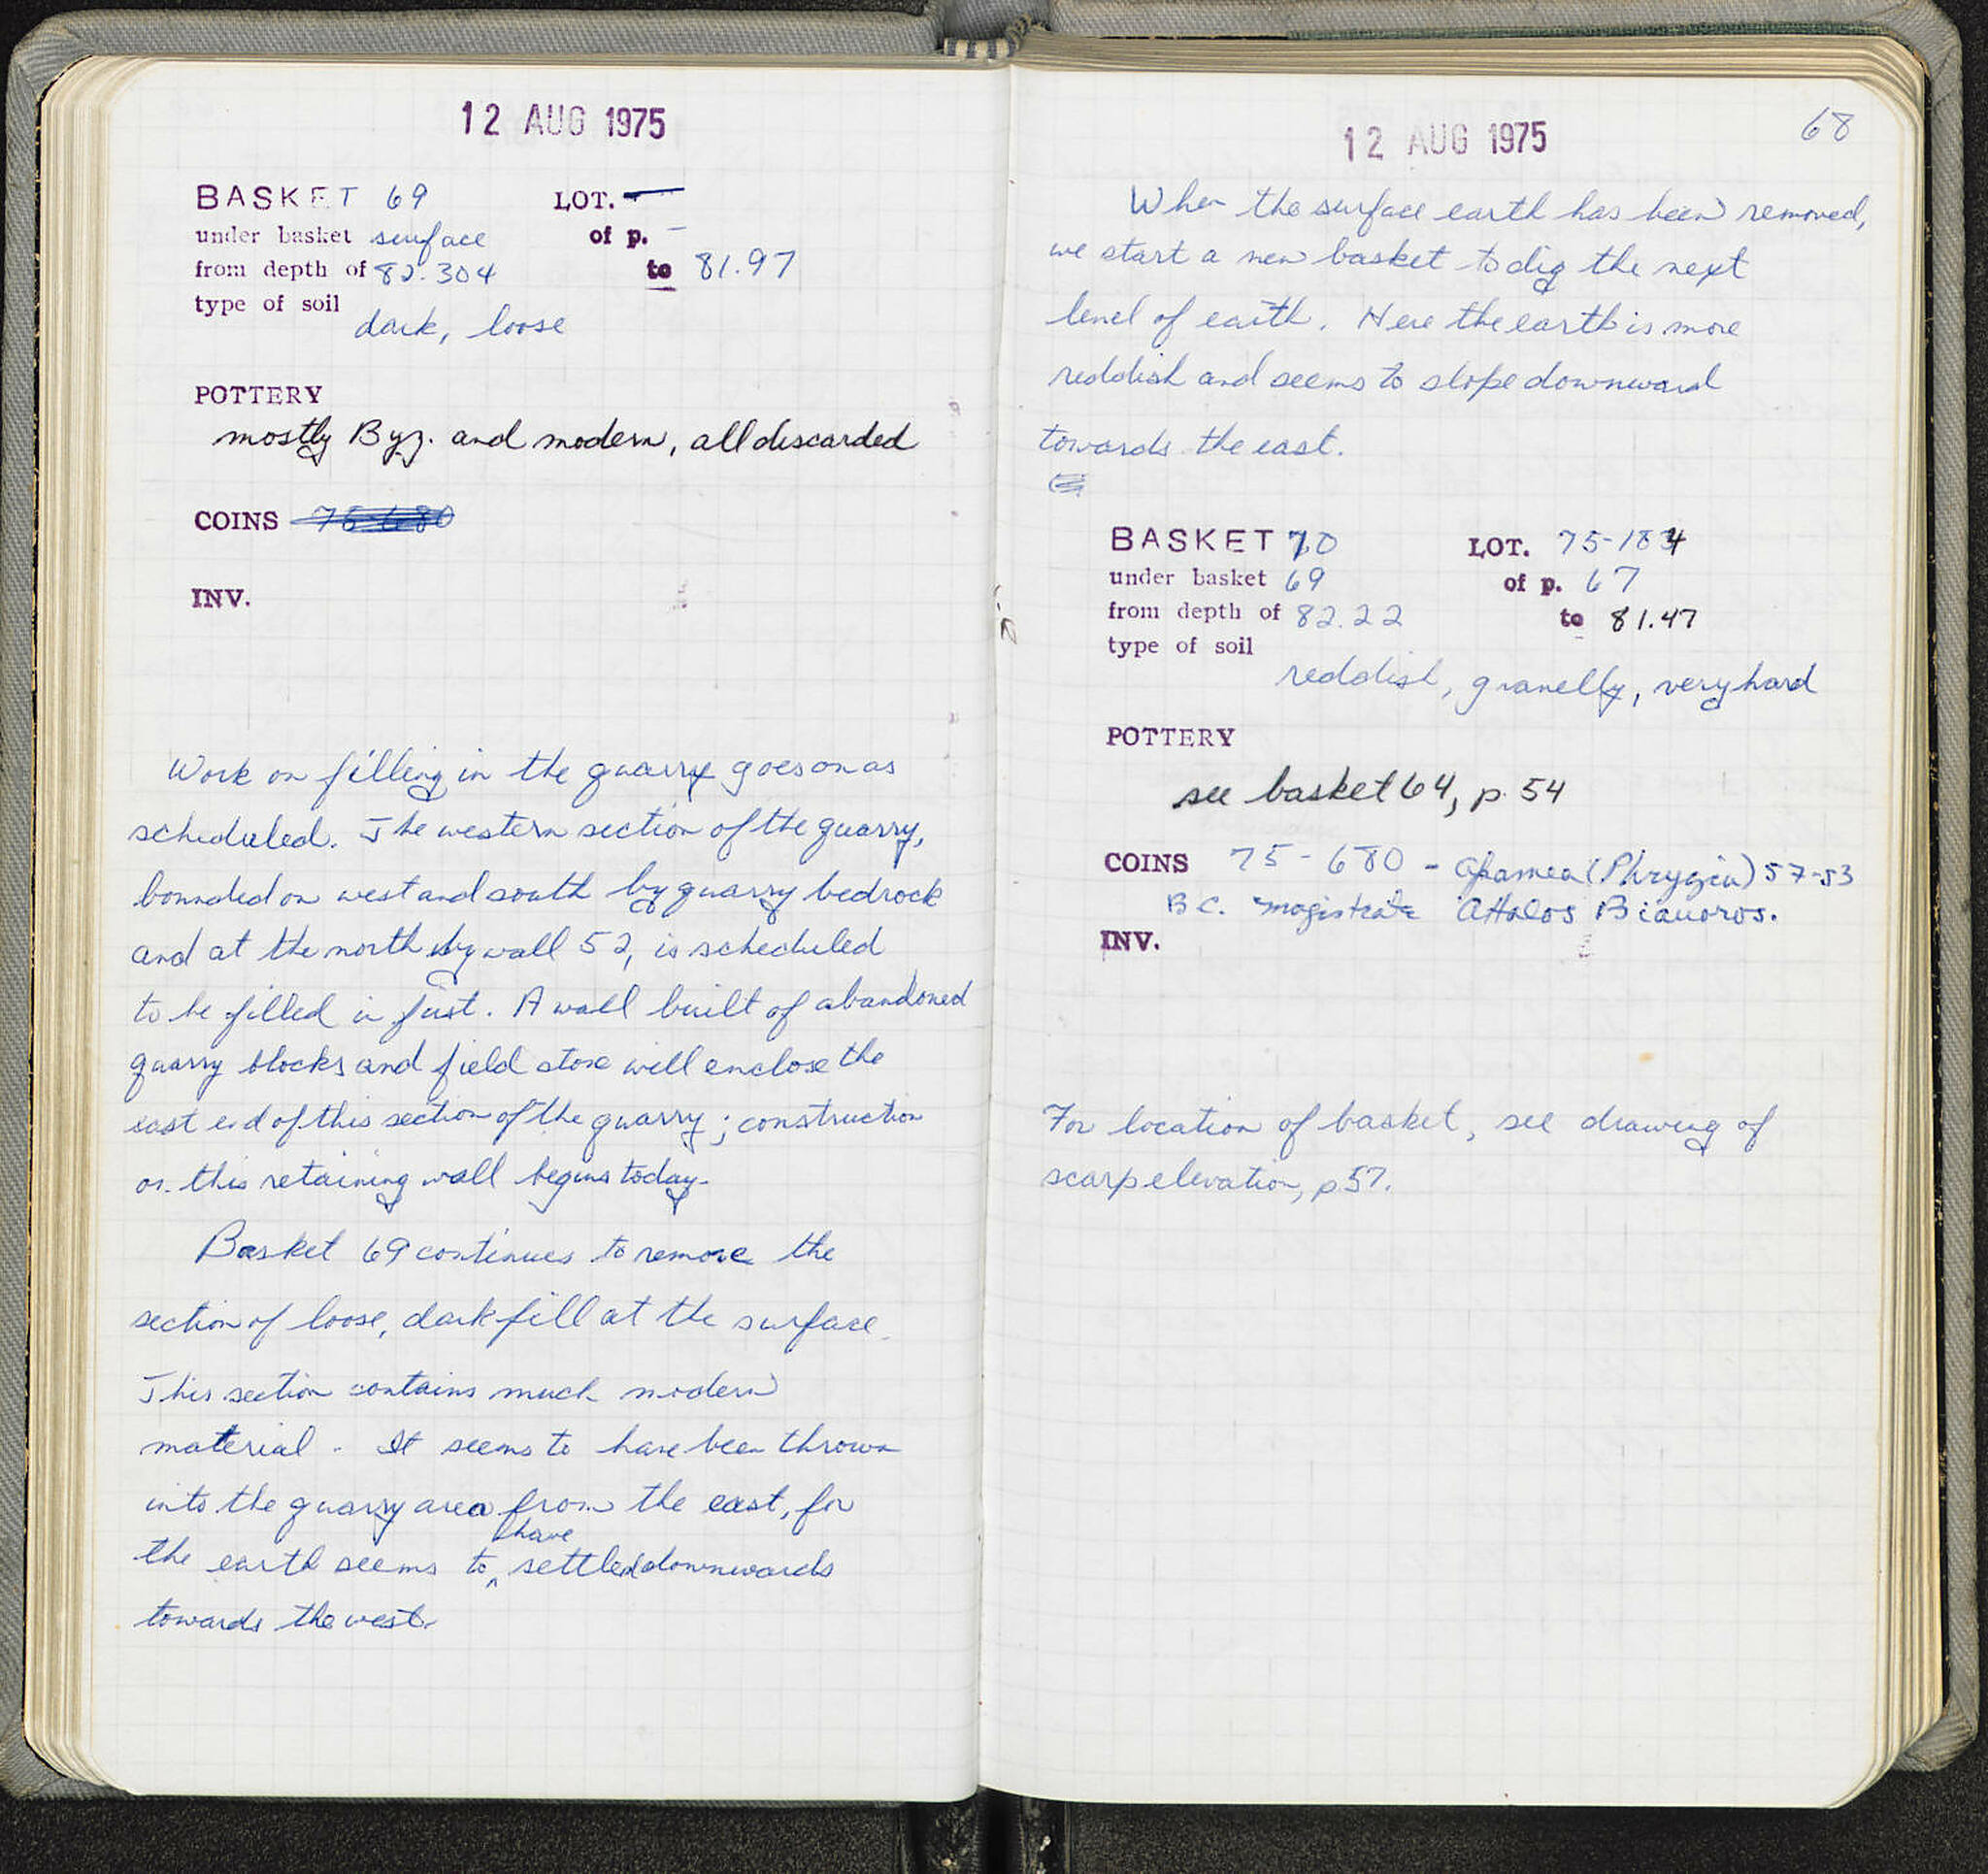 12 AUG 1975
BASKET 69 LOT. —
under basket surface of p. –
from depth of 82.304 to 81.97
type of soil
dark, loose
POTTERY
mostly Byz. and modern, all discarded
COINS 75-680
INV.
Work on filling in the quarry goes on as
scheduled. The western section of the quarry,
bounded on west and south by quarry bedrock
and at the north by wall 52, is scheduled
to be filled in first. A wall built of abandoned
quarry blocks and field stone will enclose the
east end of this section of the quarry; construction
on this retaining wall begins today.
Basket 69 continues to remove the
section of loose, dark fill at the surface.
This section contains much modern
material. It seems to have been thrown
into the quarry area from the east, for
the earth seems to have settled downwards
towards the west.
68
12 AUG 1975
When the surface earth has been removed,
we start a new basket to dig the next
level of earth. Here the earth is more
reddish and seems to slope downward
towards the east.
BASKET 70 LOT. 75-184
under basket 69 of p. 67
from depth of 82.22 to 81.47
type of soil
reddish, gravelly, very hard
POTTERY
see basket 64, p. 54
COINS 75-680 - Apamea (Phrygia) 57-53
B.C. magistrate Attalos Bianoros.
INV.
For location of basket, see drawing of
scarp elevation, p 57.